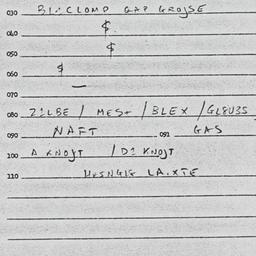 030 BI:CLOMD GAP GROJSE
040 $
050 $
060 $
070 —
080 ZILBE / MES+ / BLEX / GL8U3S
090 NAFT 091 GAS
100 A KNOJT / DI KNOJT
110 LA.XTE